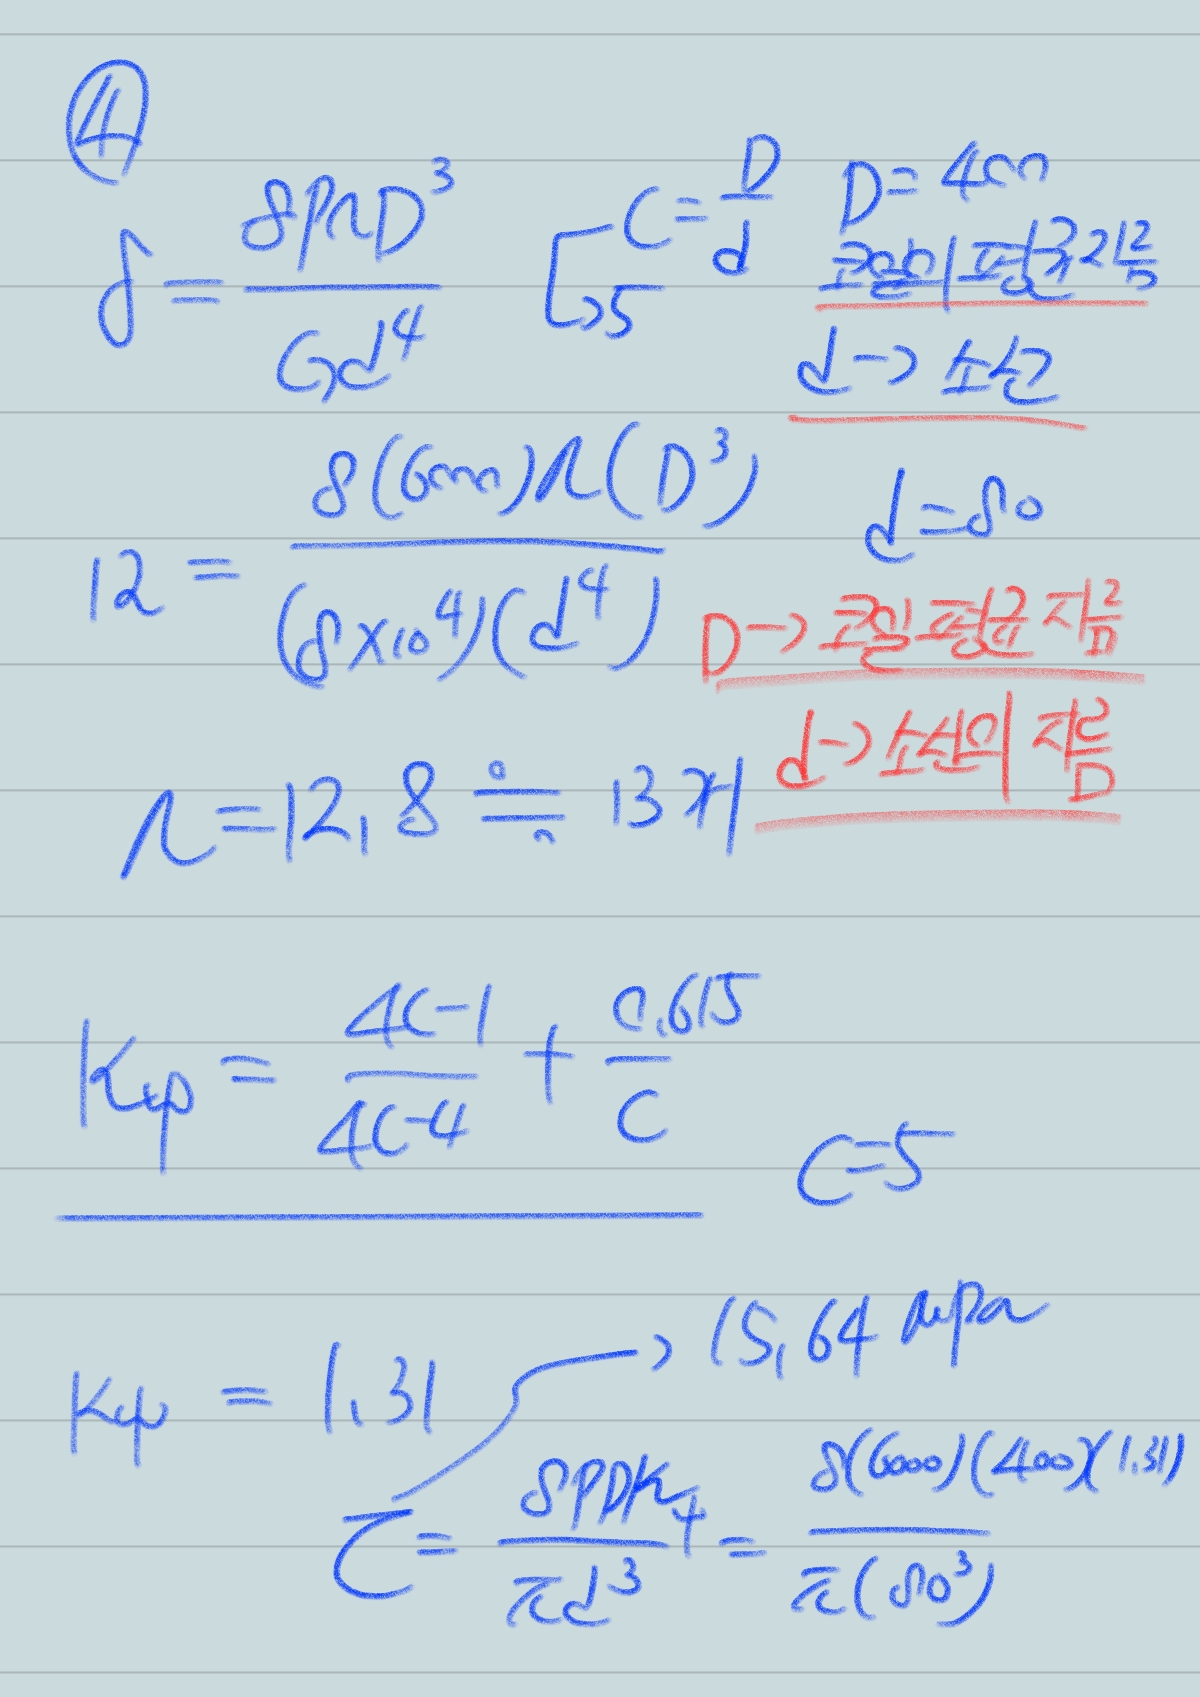 ④
δ = 8PnD³ / Gd⁴
C = D / d
→ 5
D = 400
코일의 평균지름
d → 소선
12 = 8(6000)n(D³) / (8×10⁴)(d⁴)
d = 80
D → 코일 평균 지름
d → 소선의 지름
n = 12.8 ≒ 13개
Kψ = 4C-1 / 4C-4 + 0.615 / C
C = 5
Kψ = 1.31
→ 15.64 MPa
τ = 8PDKψ / πd³ = 8(6000)(400)(1.31) / π(80³)